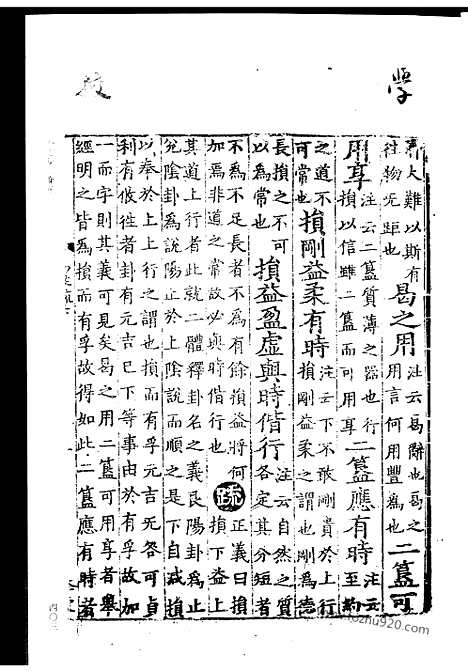 学
大難以斯有
往物无距也
曷之用
注云曷辭也曷之
用言何用豐爲也
二簋可
用享
注云二簋質薄之器也行
損以信雖二簋而可用享
二簋應有時
注云
至約
之道不
可常也
損剛益柔有時
注云下不敢剛貴於上行
損剛益柔之謂也剛爲德
長損之不可
以爲常也
損益盈虛與時偕行
注云自然之質
各定其分短者
不爲不足長者不爲有餘損益將何
加焉非道之常故必與時偕行也
疏
正義曰損
損下益上
其道上行者此就二體釋卦名之義艮陽卦爲止
兌陰卦爲說陽止於上陰說而順之是下自減損
以奉於上上行之謂也損而有孚元吉无咎可貞
利有攸往者卦有元吉已下等事由於有孚故加
一而字則其義可見矣曷之用二簋可用享者舉
經明之皆爲損而有孚故得如此二簋應有時者